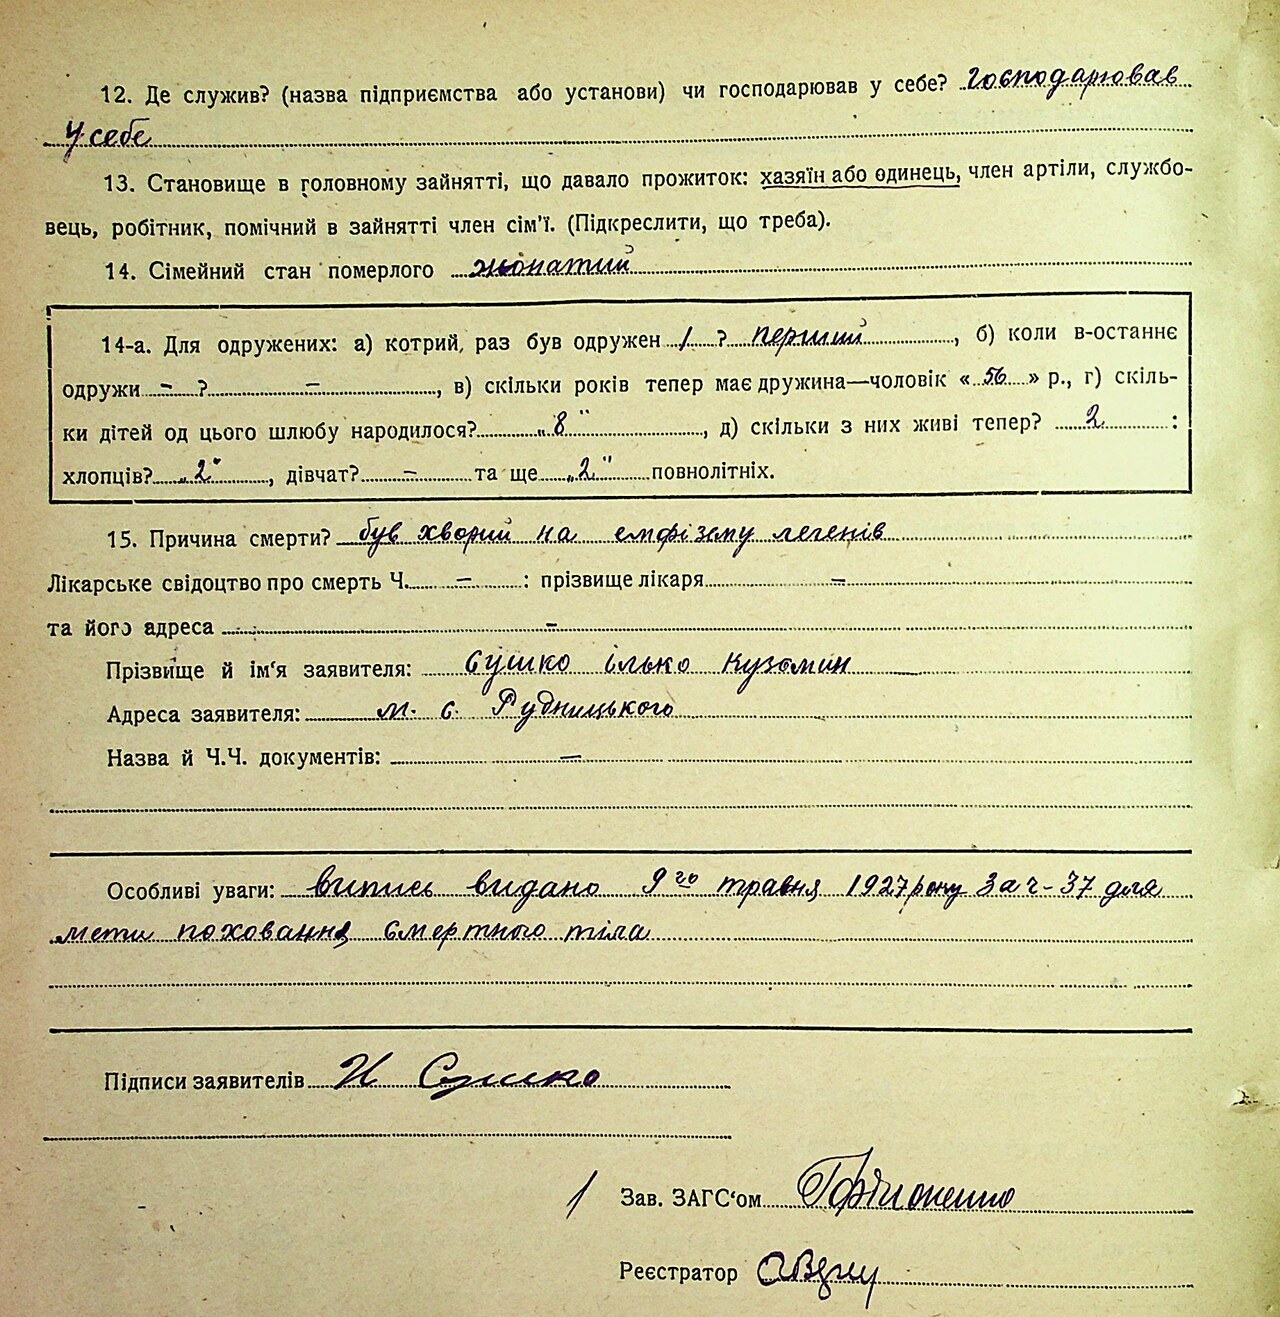 12. Де служив? (назва підприємства або установи) чи господарював у себе? господарював
у себе
13. Становище в головному зайнятті, що давало прожиток: хазяїн або одинець, член артіли, службо-
вець, робітник, помічний в зайнятті член сім'ї. (Підкреслити, що треба).
14. Сімейний стан померлого жонатий
14-а. Для одружених: а) котрий, раз був одружен 1 ? перший, б) коли в-останнє
одружи - ? -, в) скільки років тепер має дружина—чоловік « 56 » р., г) скіль-
ки дітей од цього шлюбу народилося? „8", д) скільки з них живі тепер? 2 :
хлопців? „2", дівчат? - та ще „2" повнолітніх.
15. Причина смерти? був хворий на емфізму легенів
Лікарське свідоцтво про смерть Ч. - : прізвище лікаря -
та його адреса -
Прізвище й ім'я заявителя: Сушко ілько Кузьмин
Адреса заявителя: м. с. Рудницького
Назва й Ч.Ч. документів: -
Особливі уваги: витись видано 9го травня 1927 року за ч-37 для
мети поховання смертного тіла
Підписи заявителів И Сушко
Зав. ЗАГС'ом
Реєстратор